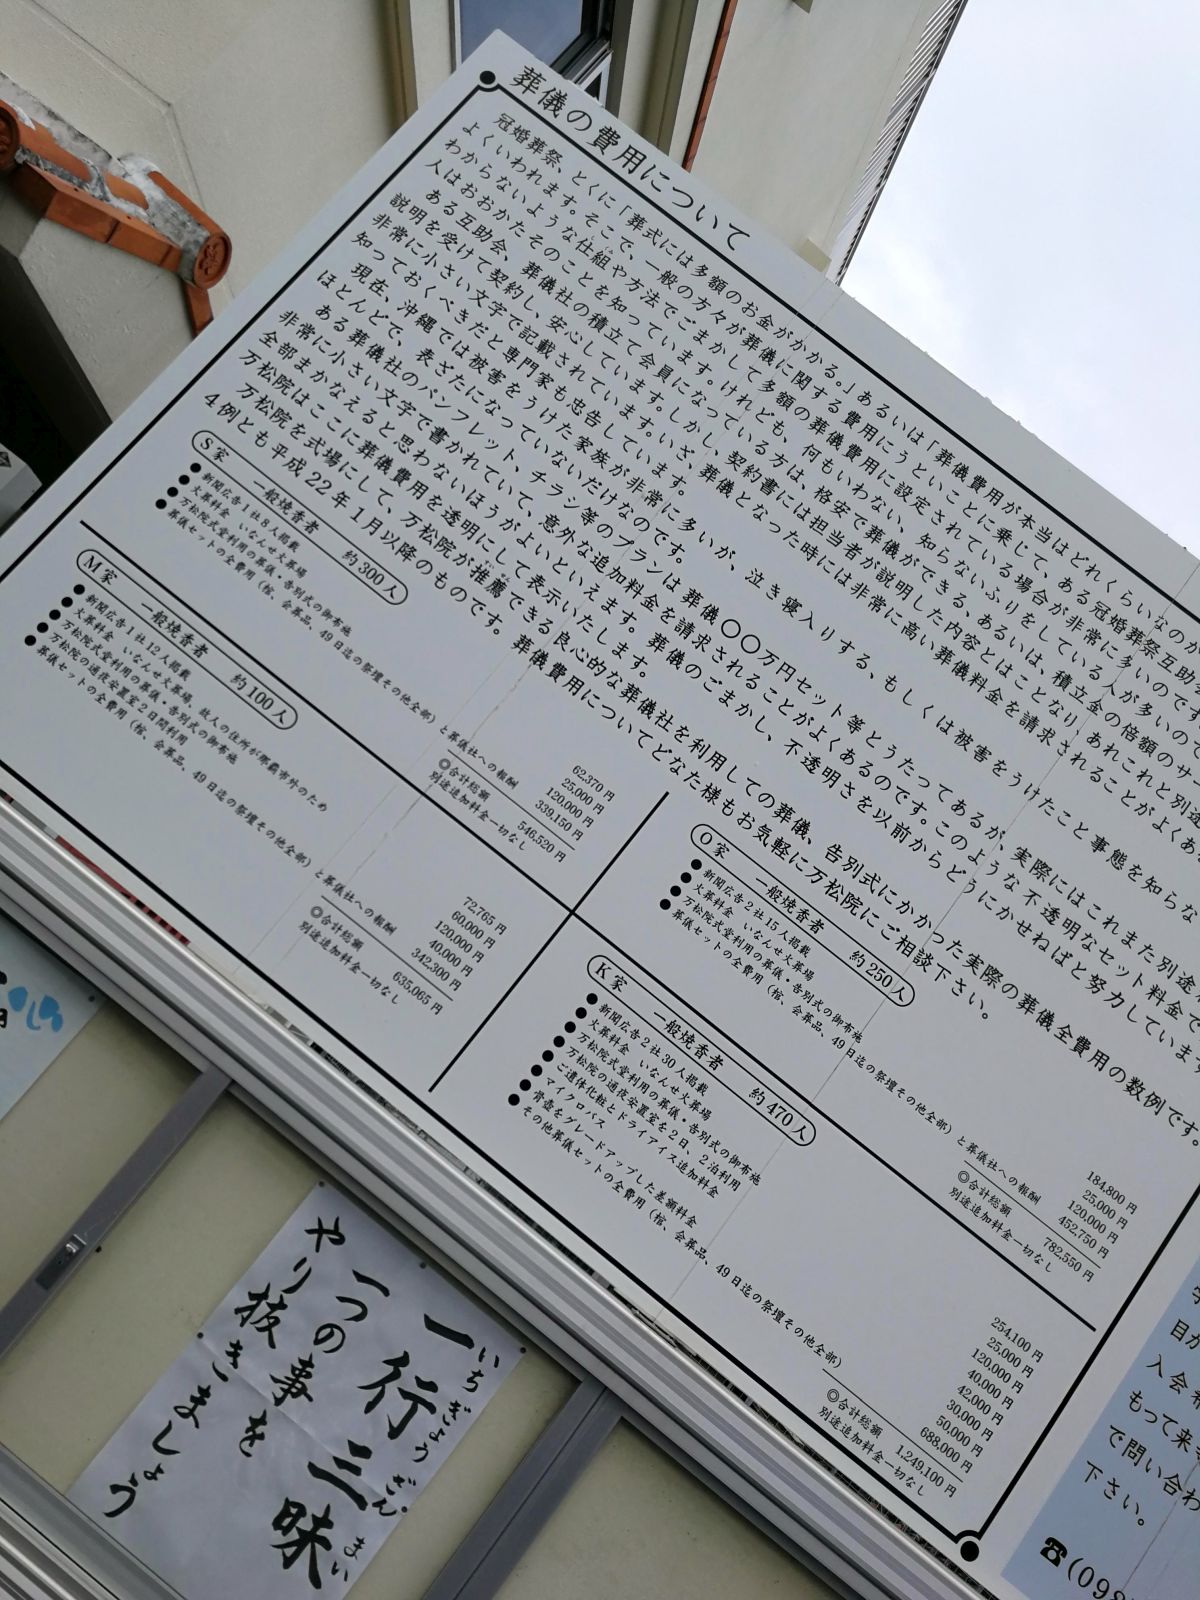 葬儀の費用について
冠婚葬祭、とくに「葬式には多額のお金がかかる。」あるいは「葬儀費用が本当はどれくらいなのか
よくいわれます。そこで、一般の方々が葬儀に関する費用にうということに乗じて、ある冠婚葬祭互助会
わからないような仕組や方法でごまかして多額の葬儀費用に設定されている場合が非常に多いのです。
人はおおかたそのことを知っています。けれども、何もいわない、知らないふりをしている人が多いので
ある互助会、葬儀社の積立て会員になっている方は、格安で葬儀ができる、あるいは、積立金の倍額のサー
説明を受けて契約し、安心しています。しかし、契約書には担当者が説明した内容とはことなり、あれこれと別途
非常に小さい文字で記載されています。いざ、葬儀となった時には非常に高い葬儀料金を請求されることがよくあ
知っておくべきだと専門家も忠告しています。
現在、沖縄では被害をうけた家族が非常に多いが、泣き寝入りする、もしくは被害をうけたこと事態を知らな
ほとんどで、表ざたになっていないだけなのです。
ある葬儀社のパンフレット、チラシ等のプランは葬儀〇〇万円セット等とうたってあるが、実際にはこれまた別途
非常に小さい文字で書かれていて、意外な追加料金を請求されることがよくあるのです。このような不透明なセット料金で
全部まかなえると思わないほうがよいといえます。葬儀のごまかし、不透明さを以前からどうにかせねばと努力しています
万松院はここに葬儀費用を透明にして表示いたします。
万松院を式場にして、万松院が推薦できる良心的な葬儀社を利用しての葬儀、告別式にかかった実際の葬儀全費用の数例です。
4例とも平成22年1月以降のものです。葬儀費用についてどなた様もお気軽に万松院にご相談下さい。
S家 一般焼香者 約300人
●新聞広告1社8人掲載 62,370円
●火葬料金 いなんせ火葬場 25,000円
●万松院式堂利用の葬儀・告別式の御布施 120,000円
●葬儀セットの全費用(棺、会葬品、49日迄の祭壇その他全部)と葬儀社への報酬 339,150円
◎合計総額 546,520円
別途追加料金一切なし
M家 一般焼香者 約100人
●新聞広告1社12人掲載 72,765円
●火葬料金 いなんせ火葬場、故人の住所が那覇市外のため 60,000円
●万松院式堂利用の葬儀・告別式の御布施 120,000円
●万松院の通夜安置室2日間利用 40,000円
●葬儀セットの全費用(棺、会葬品、49日迄の祭壇その他全部)と葬儀社への報酬 342,300円
◎合計総額 635,065円
別途追加料金一切なし
O家 一般焼香者 約250人
●新聞広告2社15人掲載 184,800円
●火葬料金 いなんせ火葬場 25,000円
●万松院式堂利用の葬儀・告別式の御布施 120,000円
●葬儀セットの全費用(棺、会葬品、49日迄の祭壇その他全部)と葬儀社への報酬 452,750円
◎合計総額 782,550円
別途追加料金一切なし
K家 一般焼香者 約470人
●新聞広告2社30人掲載 254,100円
●火葬料金 いなんせ火葬場 25,000円
●万松院式堂利用の葬儀・告別式の御布施 120,000円
●万松院の通夜安置室を2日、2泊利用 40,000円
●ご遺体化粧とドライアイス追加料金 42,000円
●マイクロバス 30,000円
●骨壺をグレードアップした差額料金 50,000円
●その他葬儀セットの全費用(棺、会葬品、49日迄の祭壇その他全部) 688,000円
◎合計総額 1,249,100円
別途追加料金一切なし
一行三昧
いちぎょうざんまい
一つの事を
やり抜きましょう
目が
入会希
もって来
で問い合わ
下さい。
☎(098